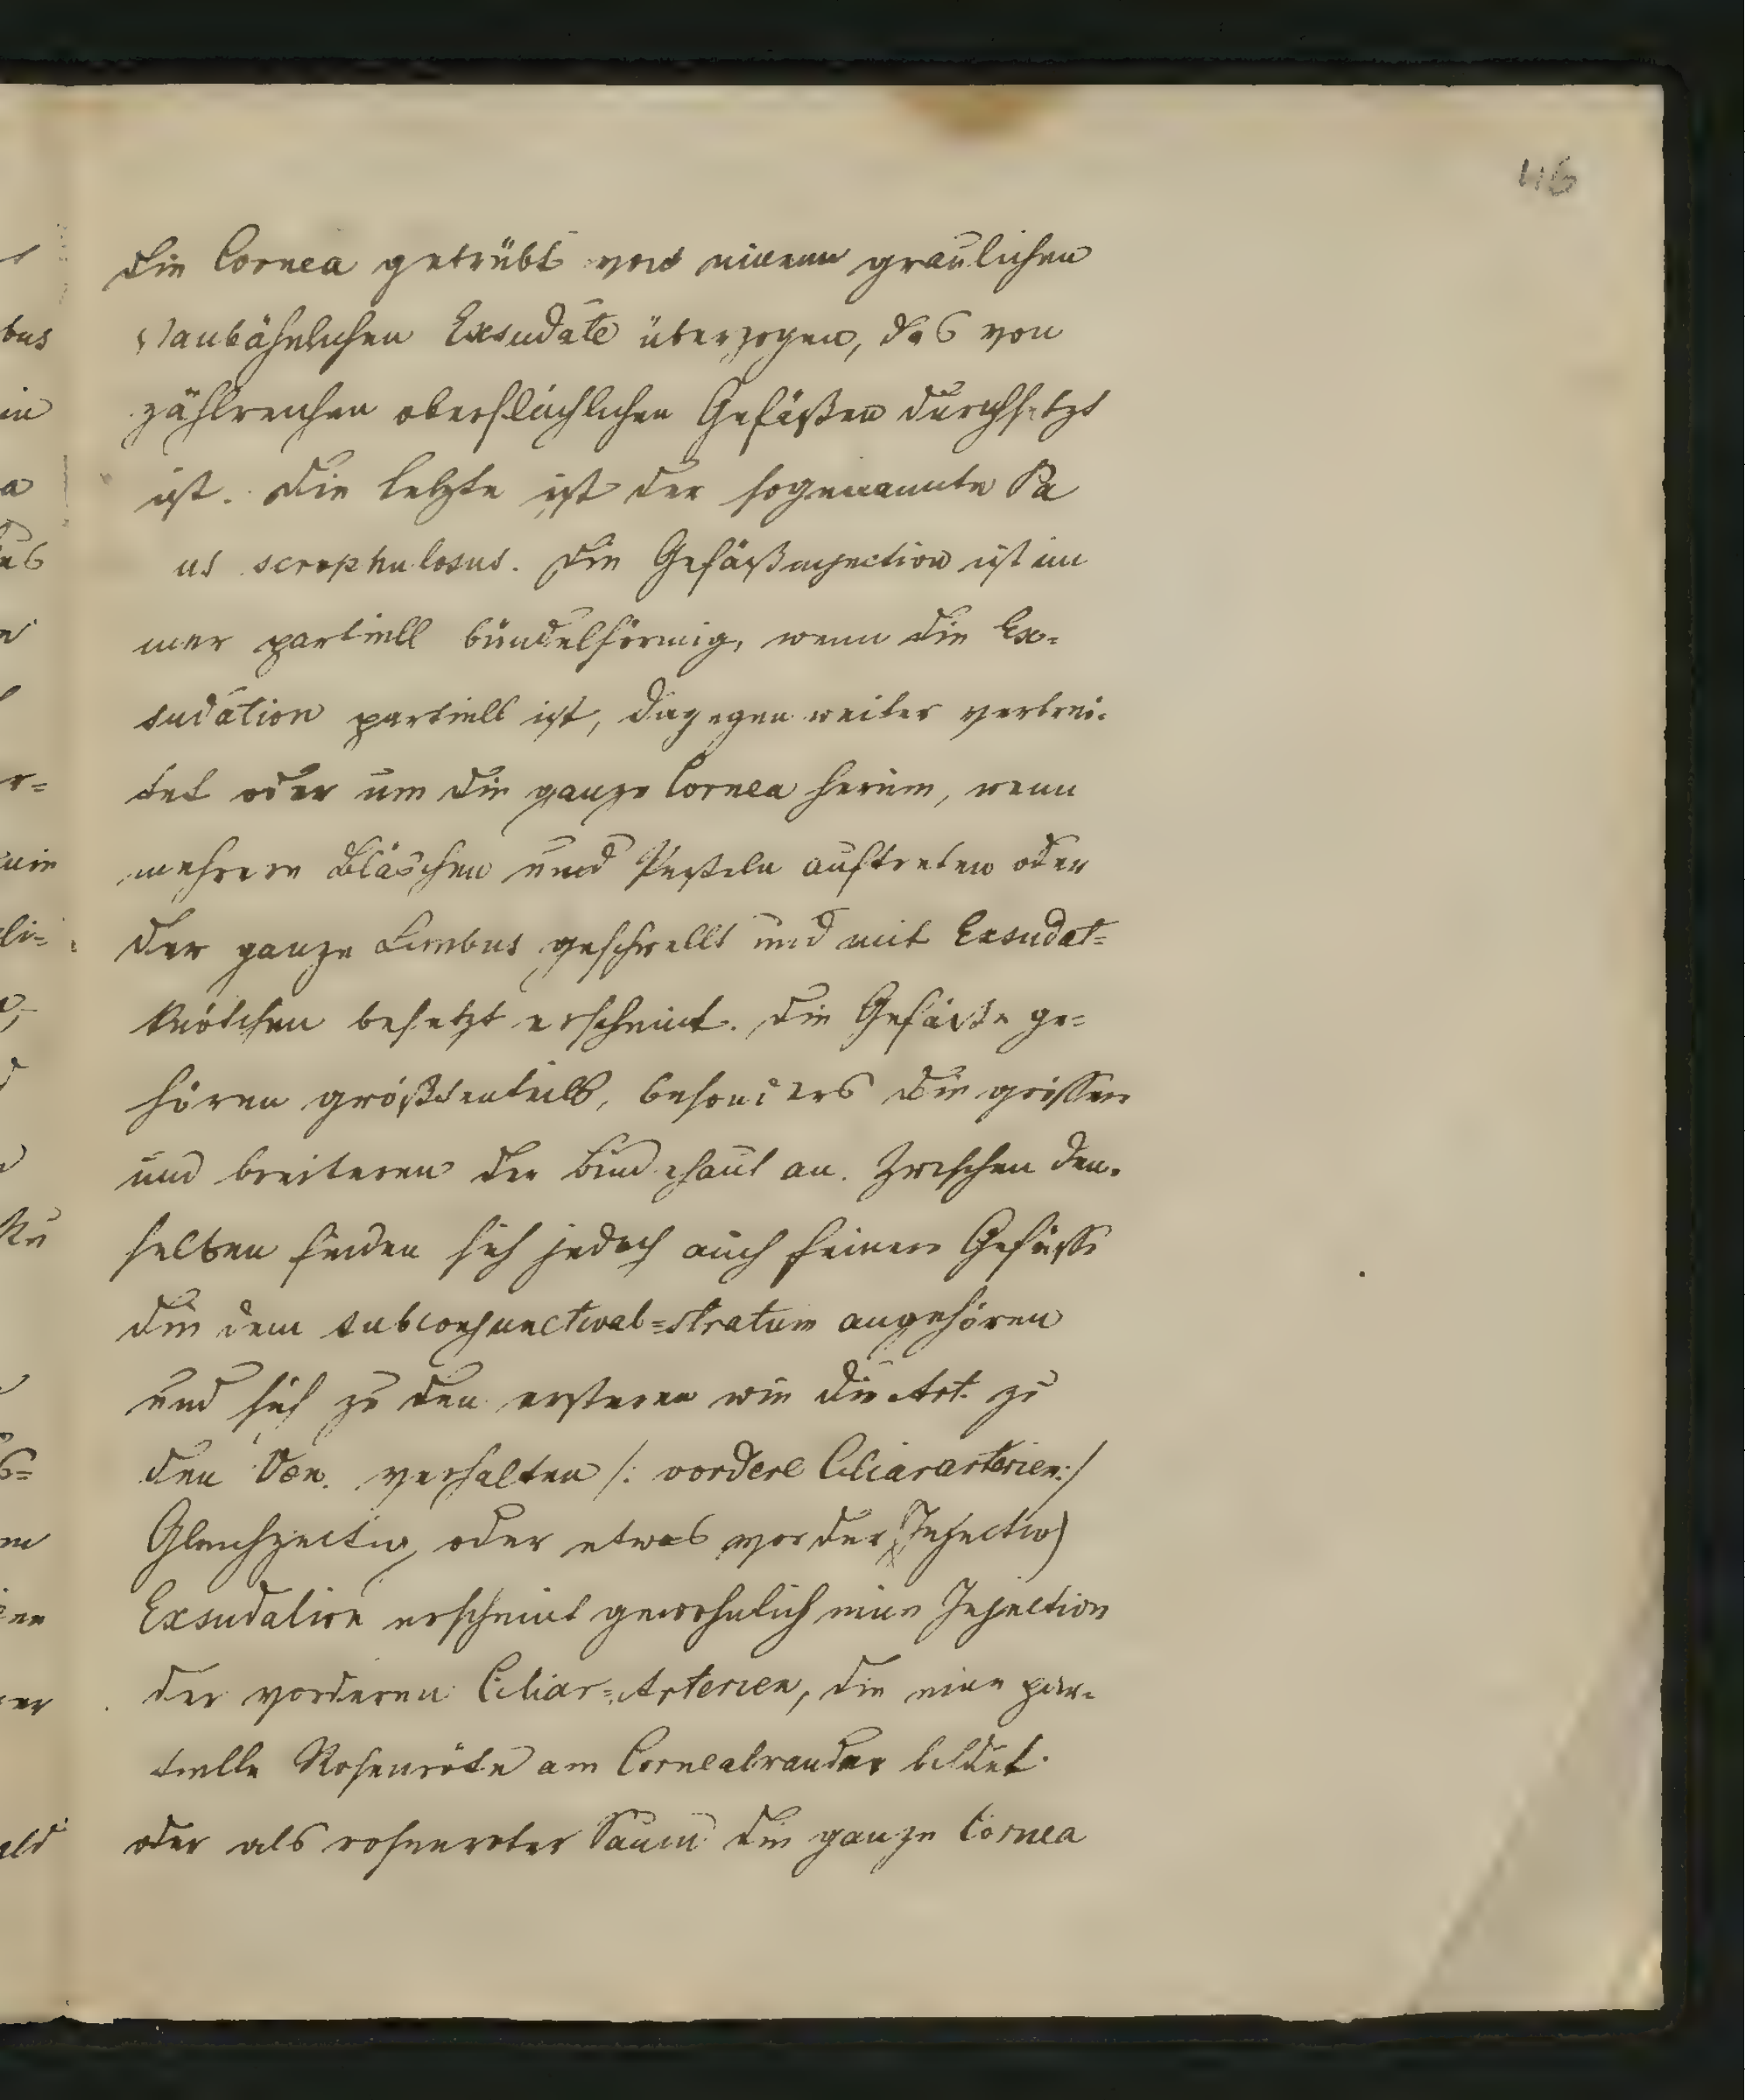 46
die Cornea getrübt von einem graulichen
staubähnlichen Exsudate überzogen, das von
zahlreichen oberflächlichen Gefäßen durchsetzt
ist. Die letzte ist der sogenannte Pa
us scrophulosus. Die Gefäßinjection ist im
mer partiell bündelförmig, wenn die Ex=
sudation partiell ist, dagegen weiter verbrei=
tet oder um die ganze Cornea herum, wenn
mehrere Bläschen und Pusteln auftreten oder
der ganze Limbus geschwellt und mit Exsudat=
knötchen besetzt erscheint. Die Gefäße ge=
hören größtenteils, besonders die grössern
und breiteren der Bindehaut an. Zwischen den=
selben finden sich jedoch auch feinere Gefässe
die dem subconjunctival=stratum angehören
und sich zu den ersteren wie die Art. zu
den Ven. verhalten /: vordere Ciliararterien:/
Gleichzeitig, oder etwas vor der Injection)
Exsudation erscheint gewöhnlich eine Injection
der vorderen Ciliar=Arterien, die eine par=
tielle Rosenröte am Cornealrande bildet
oder als rosenroter Saum die ganze Cornea
bus
in
a
r=
li=
er
ald